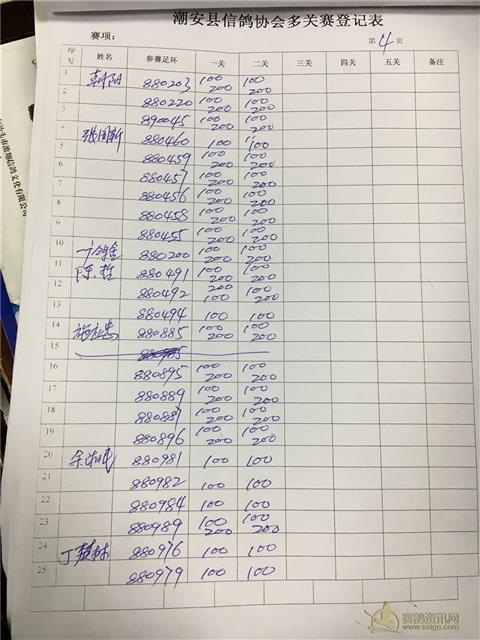 潮安县信鸽协会多关赛登记表
赛项： 第 4 页
序号 姓名 参赛足环 一关 二关 三关 四关 五关 备注
1 朝阳 880203 100 200 100 200
2 880220 100 200 100 200
3 890045 100 200 100 200
4 张国新 880460 100 100
5 880459 100 200 100 200
6 880457 100 200 100 200
7 880456 100 200 100 200
8 880458 100 200 100 200
9 880455 100 200 100 200
10 880200 100 200 100 200
11 陈哲 880491 100 200 100 200
12 880492 200 100 100 200
13 880494 100 100
14 880885 100 200 100 200
15
16 880895 100 200 100 200
17 880889 100 200 100 200
18 880887 100 200 100 200
19 880896 100 200 100 200
20 880981 100 100
21 880982 100 100
22 880984 100 100
23 880989 100 200 100 200
24 880976 100 100
25 880979 100 100
赛鸽资讯网
www.saige.com